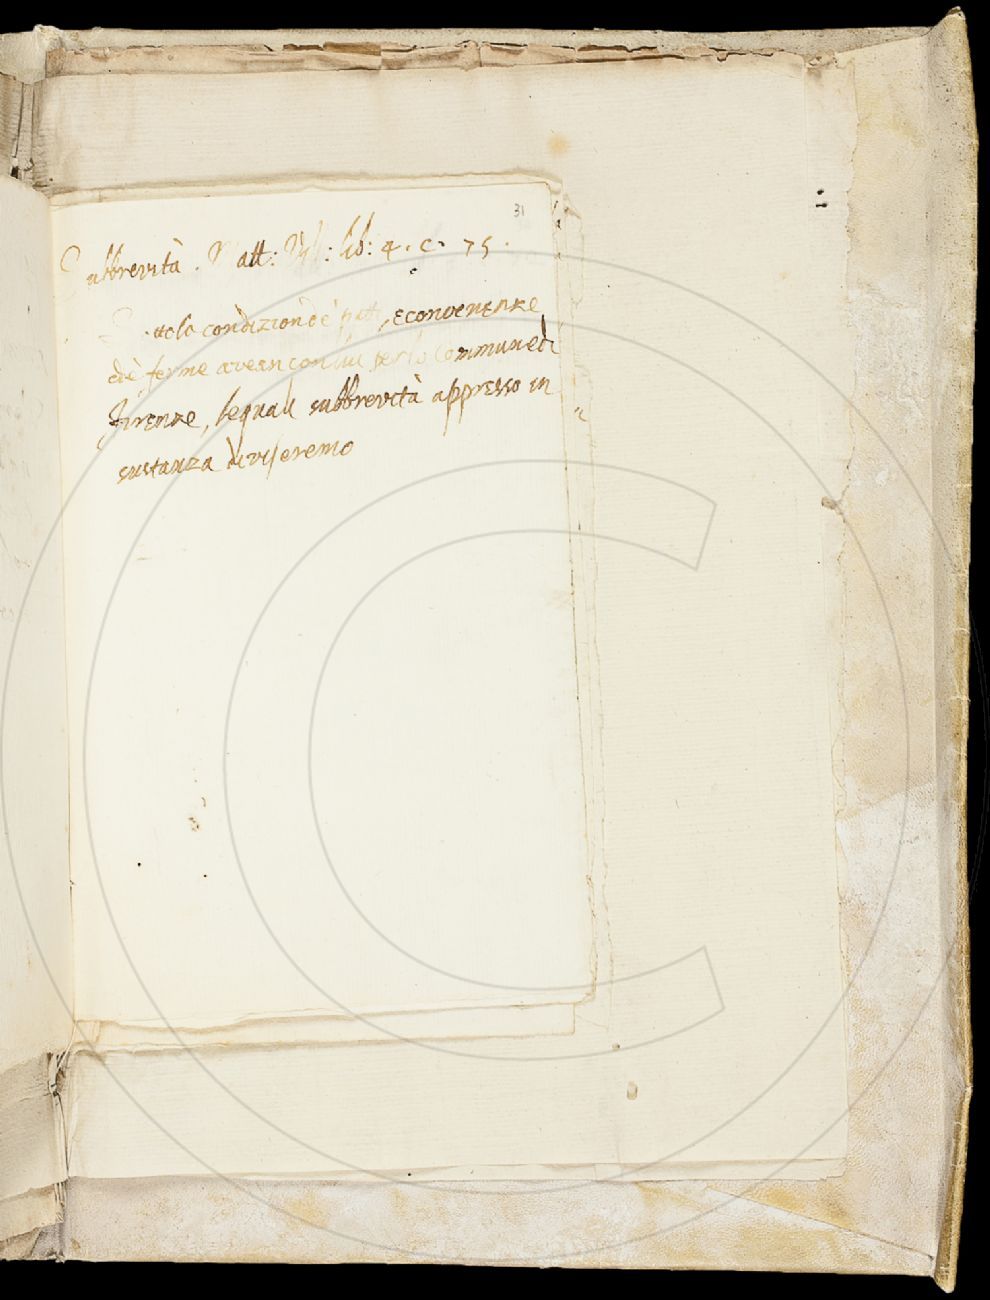 31
Subbrevità. Matt: Vill: lib: 4. c. 75.
sotto la condizione de patti, e convenenze
ed è ferme avean con lui per lo Commune di
Firenze, le quali subbrevità appresso in
sustanza diviseremo